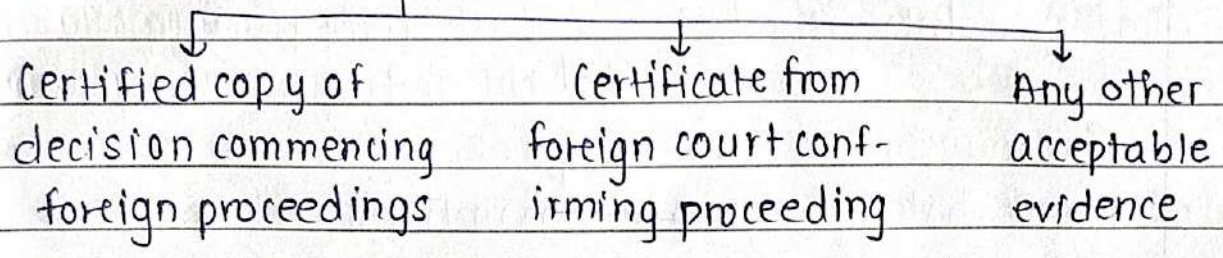 Certified copy of
decision commencing
foreign proceedings
Certificate from
foreign court conf-
irming proceeding
Any other
acceptable
evidence